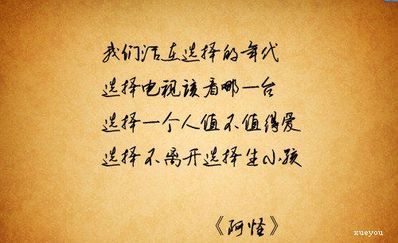 我们活在选择的年代
选择电视该看哪一台
选择一个人值不值得爱
选择不离开选择生小孩
《阿怪》
xueyou